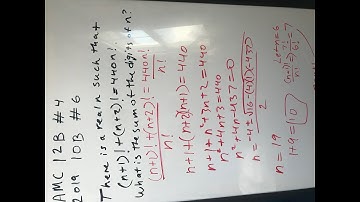 AMC 12B #4
2019 10B #6
There is a real n such that
(n+1)! + (n+2)! = 440n!
What is the sum of the digits of n?
(n+1)! + (n+2)! = 440n!
n! n!
n+1+(n+2)(n+1)=440
n+1+n²+3n+2=440
n²+4n+3=440
n²+4n-437=0
n = -4±√16-4(1)(-437)
2
n = 19
1+9=10
Let n=6
(n+1)! = 7! = 7
n! 6!